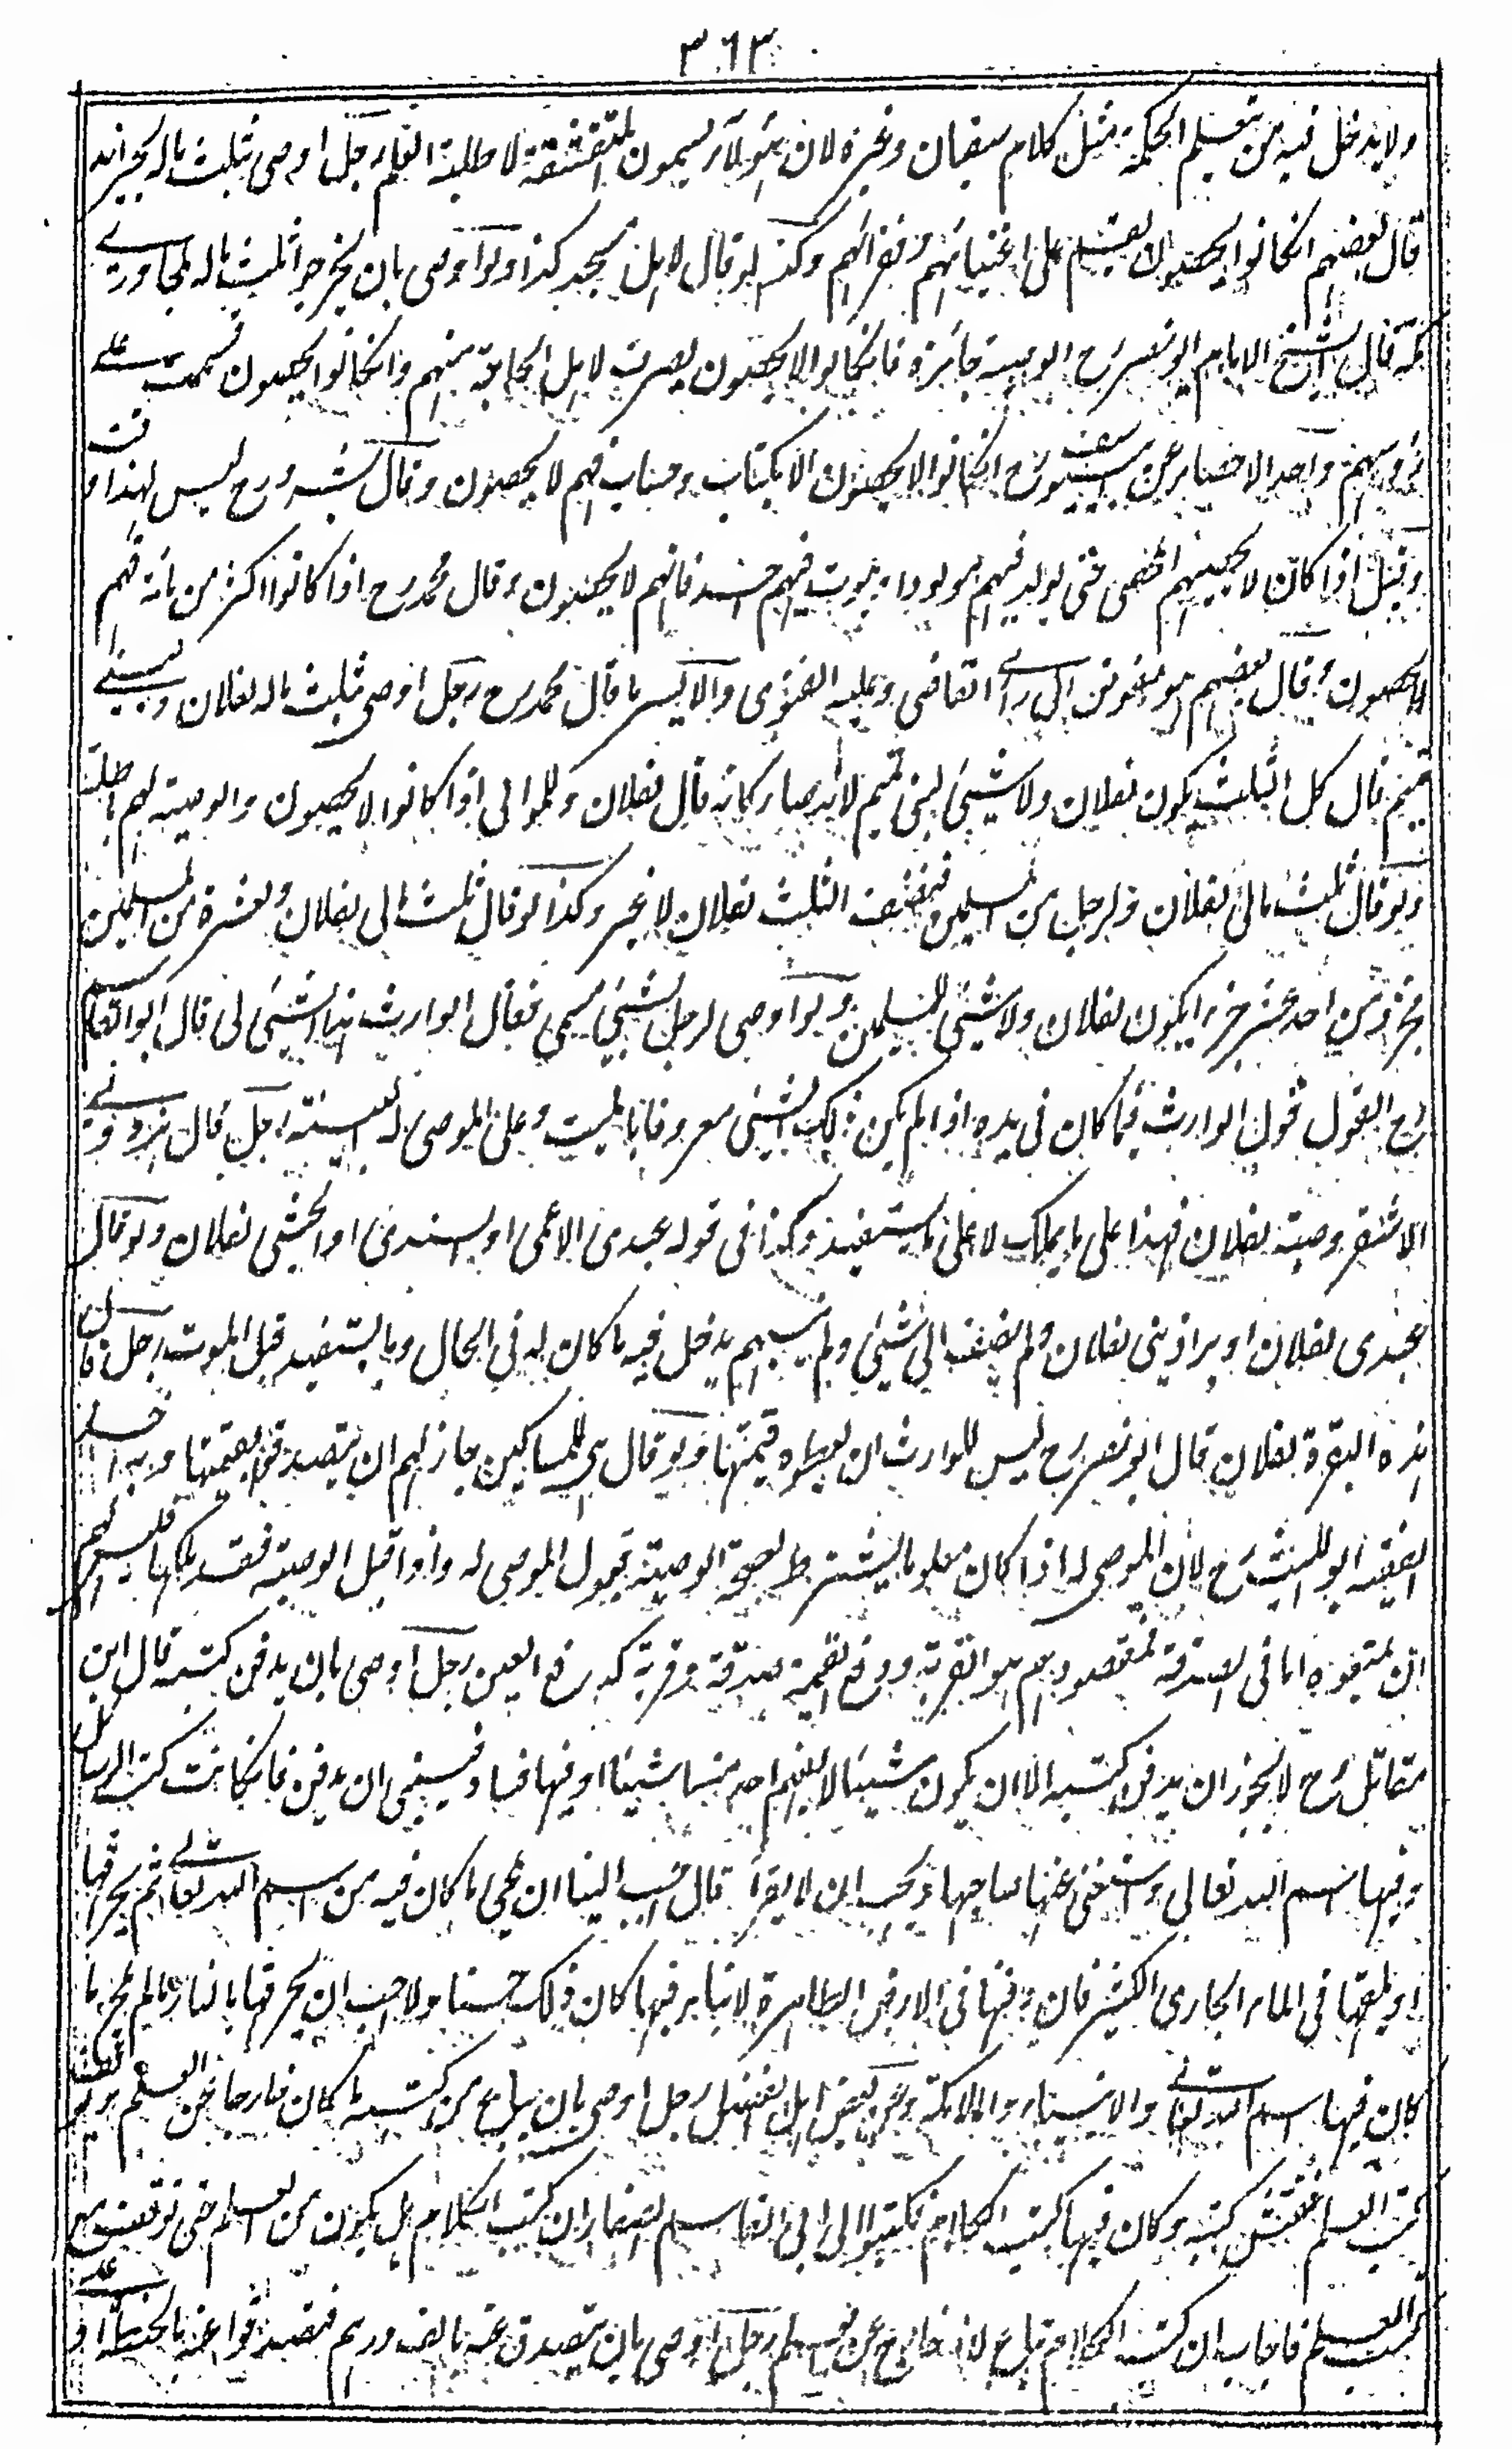 ٣٦٣
ولا يدخل فيه من يتعلم الحكمة مثل كلام سفيان وغيره لان هؤلاء يسمون المتقشفة لا طلبة العلم رجل اوصى بثلث ماله لجيرانه
قال بعضهم ان كانوا يحصون يقسم على اغنيائهم وفقرائهم وكذا لو قال لاهل مسجد كذا ولو اوصى بان يخرجوا ثلث ماله لمجاوري
مكة قال الشيخ الامام ابو نصر رح الوصية جائزة فان كانوا لا يحصون يصرف لاهل الحاجة منهم وان كانوا يحصون قسمت على
رؤسهم وحد الاحصاء عن ابي يوسف رح ان كانوا لا يحصون الا بكتاب وحساب فهم لا يحصون وقال بشر رح ليس لهذا وقت
وقيل اذا كان لا يحصيهم المحصي حتى يولد فيهم مولود او يموت فيهم احد فانهم لا يحصون وقال محمد رح اذا كانوا اكثر من مائة فهم
لا يحصون وقال بعضهم هو مفوض الى راي القاضي وعليه الفتوى والايسر ما قال محمد رح رجل اوصى بثلث ماله لفلان وبني
تميم قال كل الثلث يكون لفلان ولا شيئ لبني تميم لانه صار كانه قال لفلان وللموالي اذا كانوا لا يحصون والوصية لهم باطلة
ولو قال ثلث مالي لفلان ولرجل من المسلمين فنصف الثلث لفلان لا غير وكذا لو قال ثلث مالي لفلان ولعشرة من المسلمين
فجزء من احد عشر جزءا يكون لفلان ولا شيئ للمسلمين ولو اوصى لرجل بشيئ مسمى فقال الوارث هذا الشيئ لي قال ابو القاسم
رح القول قول الوارث فيما كان في يده اذا لم يكن ذلك الشيئ معروفا بالميت وعلى الموصى له البينة رجل قال برذوني
الاشقر وصية لفلان فهذا على ما يملك لا على ما يستفيد وكذا في قوله عبدي الاعمى او السندي او الحبشي لفلان ولو قال
عبدي لفلان او براذيني لفلان ولم يضف الى شيئ ولم يسمهم يدخل فيه ما كان له في الحال وما يستفيد قبل الموت رجل قال
هذه البقرة لفلان قال ابو نصر رح ليس للوارث ان يعطوه قيمتها ولو قال هي للمساكين جاز لهم ان يتصدقوا بقيمتها وبه اخذ
الفقيه ابو الليث رح لان الموصى له اذا كان معلوما يشترط لصحة الوصية قبول الموصى له واذا قبل الوصية فقد ملكها فليس لهم
ان يمنعوه اما في الصدقة فمقصودهم هو القربة ودفع القيمة صدقة وقربة كدفع العين رجل اوصى بان يدفن كتبه قال ابن
مقاتل رح لا يجوز ان يدفن كتبه الا ان يكون شيئا لا يفهم احد منها شيئا او فيها فساد فينبغي ان يدفن فان كانت كتب الرسائل
وفيها اسم الله تعالى واستغنى عنها صاحبها ويحب ان لا يقرأ قال احب الينا ان يمحى ما كان فيه من اسم الله تعالى ثم يحرقها
او يلقيها في الماء الجاري الكثير فان دفنها في الارض الطاهرة لا يناله قذر كان ذلك حسنا ولا احب ان يحرقها بالنار ما لم يمح ما
كان فيها اسم الله تعالى والانبياء والملائكة وعن بعض اهل الفضل رجل اوصى بان يباع من كتبه ما كان خارجا عن العلم ويوقف
كتب العلم ففتش كتبه وكان فيها كتب الكلام فكتبوا الى ابي القاسم الصفار ان كتب الكلام هل يكون من العلم حتى توقف مع
كتب العلم فاجاب ان كتب الكلام تباع لانه خارج عن العلم رجل اوصى بان يتصدق عنه بالف درهم فتصدقوا عنه بالحنطة او